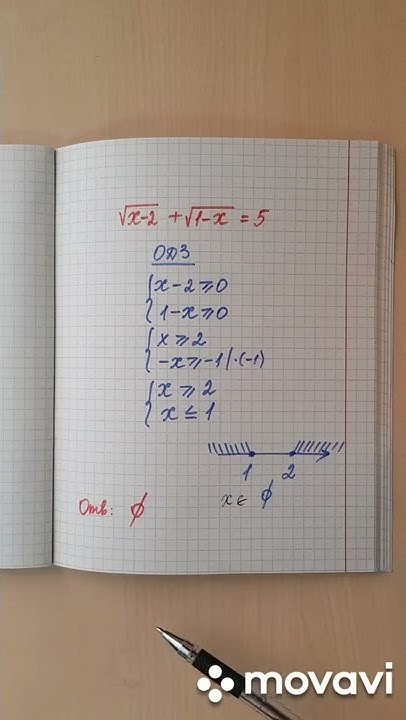 √x-2 + √1-x = 5
ОДЗ
{x-2⩾0
1-x⩾0
{x⩾2
-x⩾-1 |·(-1)
{x⩾2
x≤1
1 2
x∈ ∅
Отв: ∅
movavi